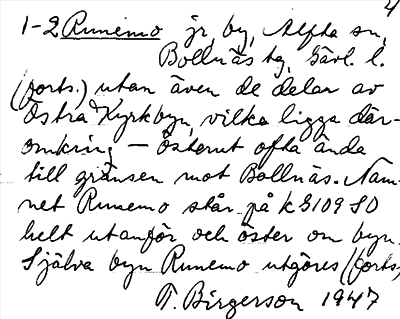 4
1-2 Runemo jr, by, Alfta sn,
Bollnäs tg, Gävl. l.
(forts.) utan även de delar av
Östra Kyrkbyn, vilka ligga där-
omkring — österut ofta ända
till gränsen mot Bollnäs. Nam-
net Runemo står på k G109 SO
helt utanför och öster om byn.
Själva byn Runemo utgöres (forts.)
T. Birgerson 1947